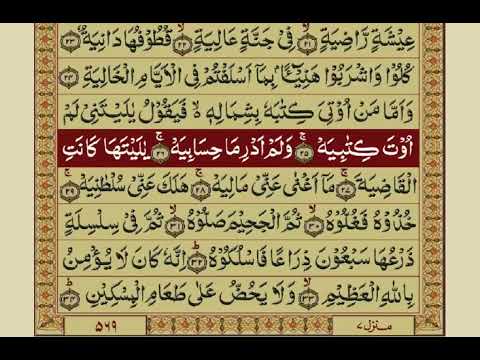 عِيۡشَةٍ رَّاضِيَةٍ ۙ‏﴿۲۱﴾ فِىۡ جَنَّةٍ عَالِيَةٍ ۙ‏﴿۲۲﴾ قُطُوۡفُهَا دَانِيَةٌ ‏﴿۲۳﴾
كُلُوۡا وَاشۡرَبُوۡا هَنِيۡٓــٴًـا ۢ بِمَاۤ اَسۡلَفۡتُمۡ فِى الۡاَيَّامِ الۡخَالِيَةِ ‏﴿۲۴﴾
وَاَمَّا مَنۡ اُوۡتِىَ كِتٰبَهٗ بِشِمَالِهٖ ۙ فَيَقُوۡلُ يٰلَيۡتَنِىۡ لَمۡ
اُوۡتَ كِتٰبِيَهۡ‌ۚ‏﴿۲۵﴾ وَلَمۡ اَدۡرِ مَا حِسَابِيَهۡ‌ۚ‏﴿۲۶﴾ يٰلَيۡتَهَا كَانَتِ
الۡقَاضِيَةَ‌ ۚ‏﴿۲۷﴾ مَاۤ اَغۡنٰى عَنِّىۡ مَالِيَهۡ‌ۚ‏﴿۲۸﴾ هَلَكَ عَنِّىۡ سُلۡطٰنِيَهۡ‌ۚ‏﴿۲۹﴾
خُذُوۡهُ فَغُلُّوۡهُ ۙ‏﴿۳۰﴾ ثُمَّ الۡجَحِيۡمَ صَلُّوۡهُ ۙ‏﴿۳۱﴾ ثُمَّ فِىۡ سِلۡسِلَةٍ
ذَرۡعُهَا سَبۡعُوۡنَ ذِرَاعًا فَاسۡلُكُوۡهُ ؕ‏﴿۳۲﴾ اِنَّهٗ كَانَ لَا يُؤۡمِنُ
بِاللّٰهِ الۡعَظِيۡمِۙ‏﴿۳۳﴾ وَلَا يَحُضُّ عَلٰى طَعَامِ الۡمِسۡكِيۡنِؕ‏﴿۳۴﴾
منزل ۷
۵۶۹